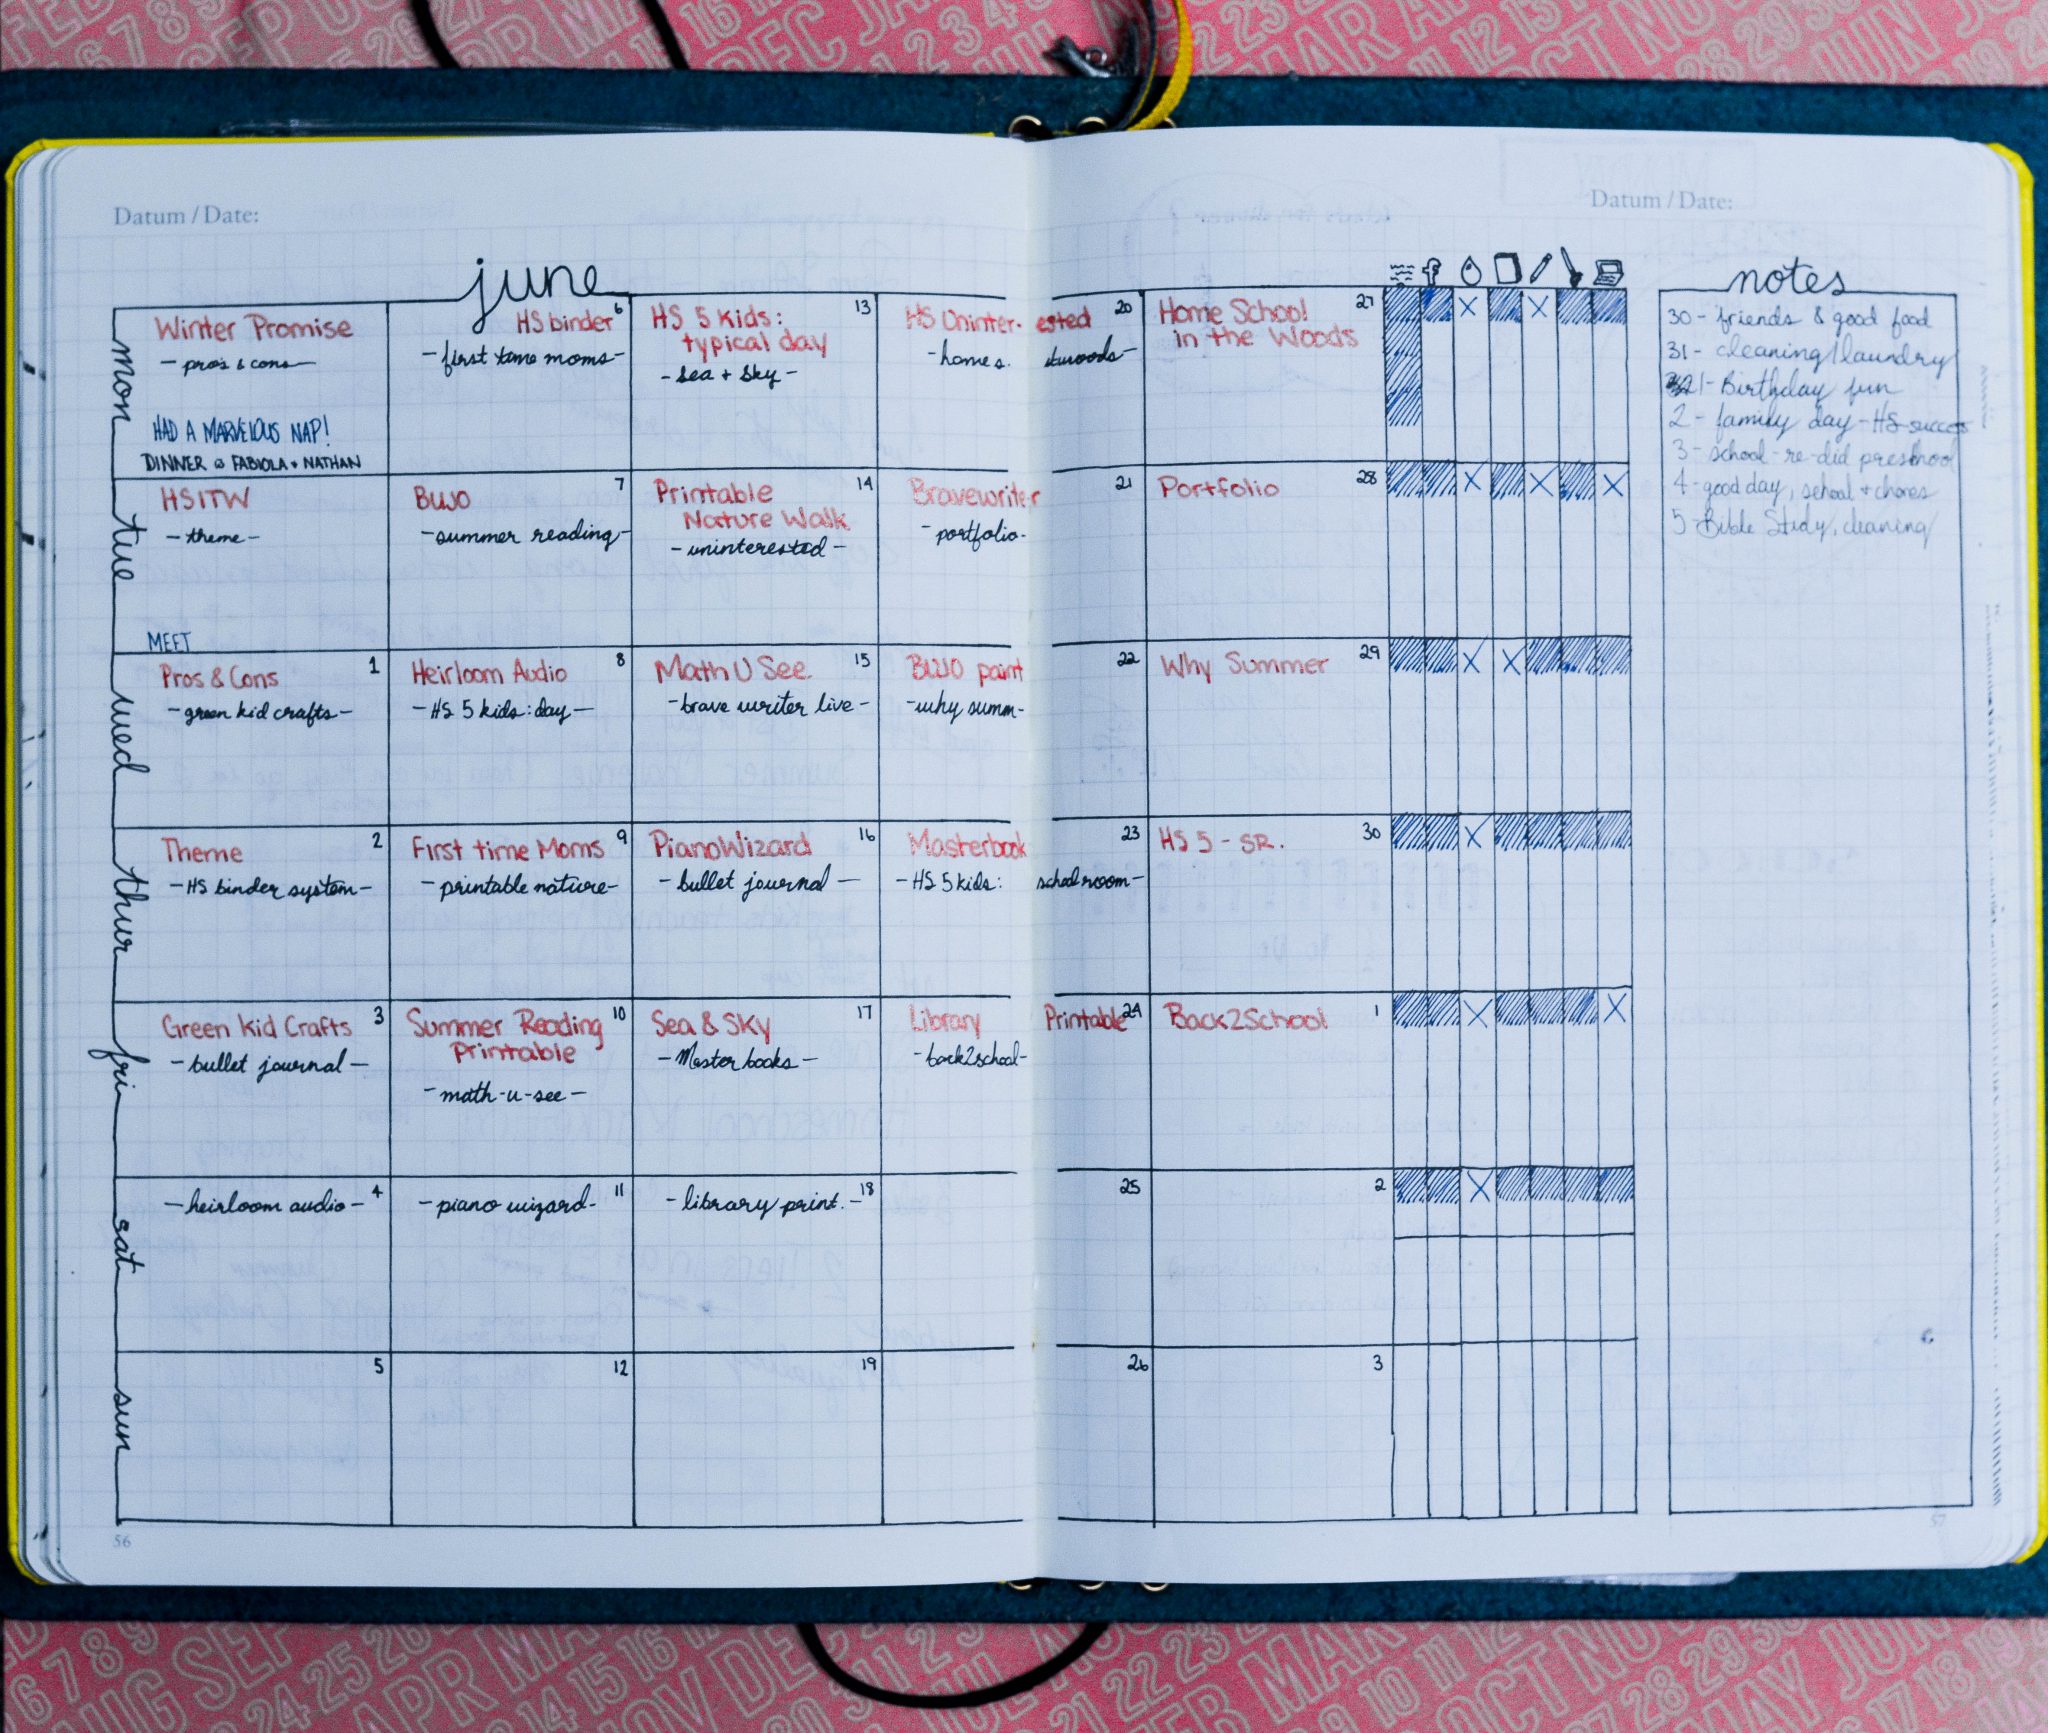 Datum / Date:
Datum / Date:
june
notes
mon
Winter Promise
- pros & cons -
HAD A MARVELOUS NAP!
DINNER @ FABIOLA + NATHAN
6
HS binder
- first time moms -
13
HS 5 kids:
typical day
- Sea + Sky -
20
HS Uninter-ested
- home s. itwoods -
27
Home School
in the Woods
tue
HSITW
- theme -
MEET
7
BUJO
- summer reading -
14
Printable
Nature Walk
- uninterested -
21
Bravewriter
- portfolio -
28
Portfolio
wed
1
Pros & Cons
- green kid crafts -
8
Heirloom Audio
- HS 5 kids: day -
15
Math U See
- brave writer live -
22
BUJO paint
- why summ -
29
Why Summer
thur
2
Theme
- HS binder system -
9
First time Moms
- printable nature -
16
PianoWizard
- bullet journal -
23
Masterbook
- HS 5 kids: schoolroom -
30
HS 5 - SR.
fri
3
Green Kid Crafts
- bullet journal -
10
Summer Reading
Printable
- math-u-see -
17
Sea & Sky
- Master books -
24
Library Printable
- back2school -
1
Back2School
sat
4
- heirloom audio -
11
- piano wizard -
18
- library print. -
25
2
sun
5
12
19
26
3
30 - friends & good food
31 - cleaning/laundry
1 - Birthday fun
2 - family day - HS success
3 - school - re-did preschool
4 - good day, school + chores
5 - Bible Study, cleaning
56
57